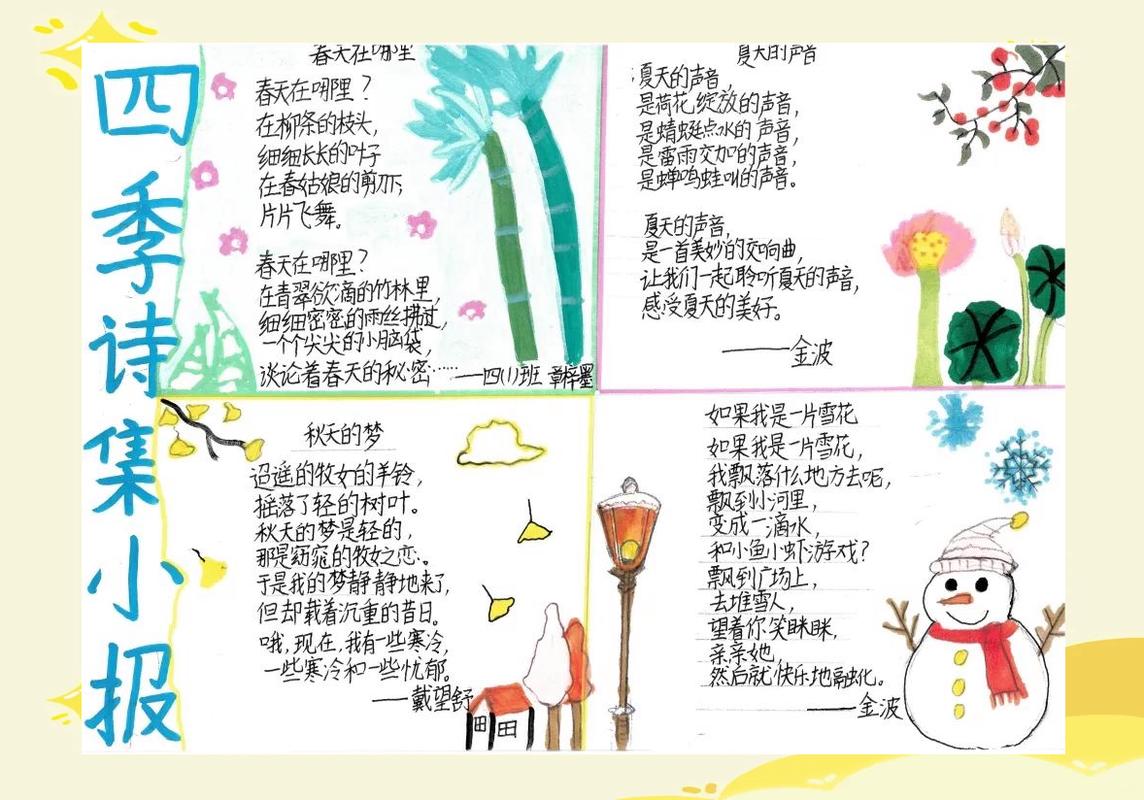 四季诗集小报
春天在哪里
春天在哪里？
在柳条的枝头，
细细长长的叶子
在春姑娘的剪刀下，
片片飞舞。
春天在哪里？
在青翠欲滴的竹林里，
细细密密的雨丝拂过，
一个个尖尖的小脑袋，
谈论着春天的秘密……
——四(1)班 章梓墨
夏天的声音
夏天的声音，
是荷花绽放的声音，
是蜻蜓点水的声音，
是雷雨交加的声音，
是蝉鸣蛙叫的声音。
夏天的声音，
是一首美妙的交响曲，
让我们一起聆听夏天的声音，
感受夏天的美好。
——金波
秋天的梦
迢遥的牧女的羊铃，
摇落了轻的树叶。
秋天的梦是轻的，
那是窈窕的牧女之恋。
于是我的梦静静地来了，
但却载着沉重的昔日。
哦，现在，我有一些寒冷，
一些寒冷和一些忧郁。
——戴望舒
如果我是一片雪花
如果我是一片雪花，
我飘落什么地方去呢，
飘到小河里，
变成一滴水，
和小鱼小虾游戏？
飘到广场上，
去堆雪人，
望着你笑眯眯，
亲亲她，
然后就快乐地融化。
——金波